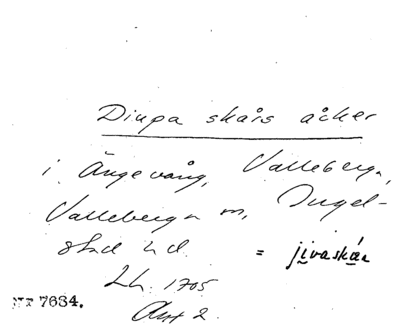 Diupa skårs åcker
i Ängevång, Valleberga,
Valleberga sn, Ingel-
stad hd. = jivaskår
Lh. 1705
Akt 2.
Nr 7634.